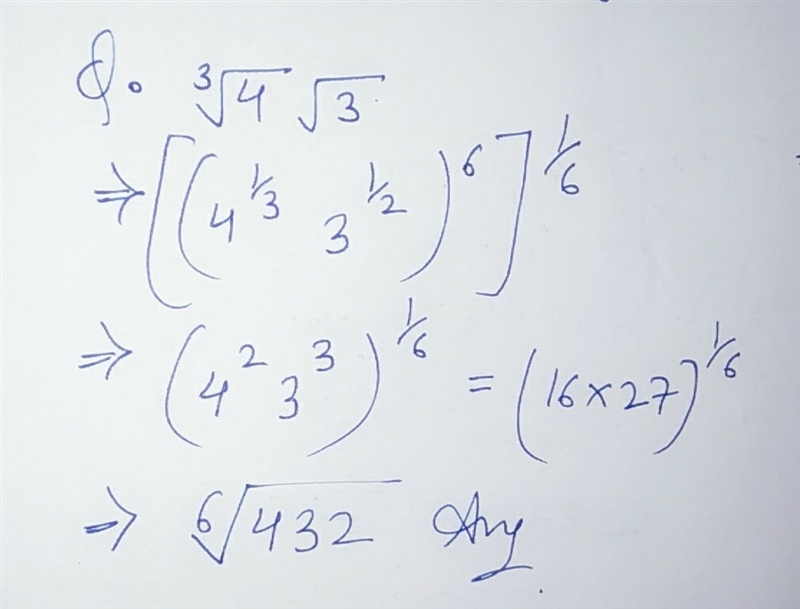 Q. ∛4 √3
⇒ [(4^1/3 3^1/2)^6]^1/6
⇒ (4^2 3^3)^1/6 = (16×27)^1/6
⇒ ⁶√432 Ans